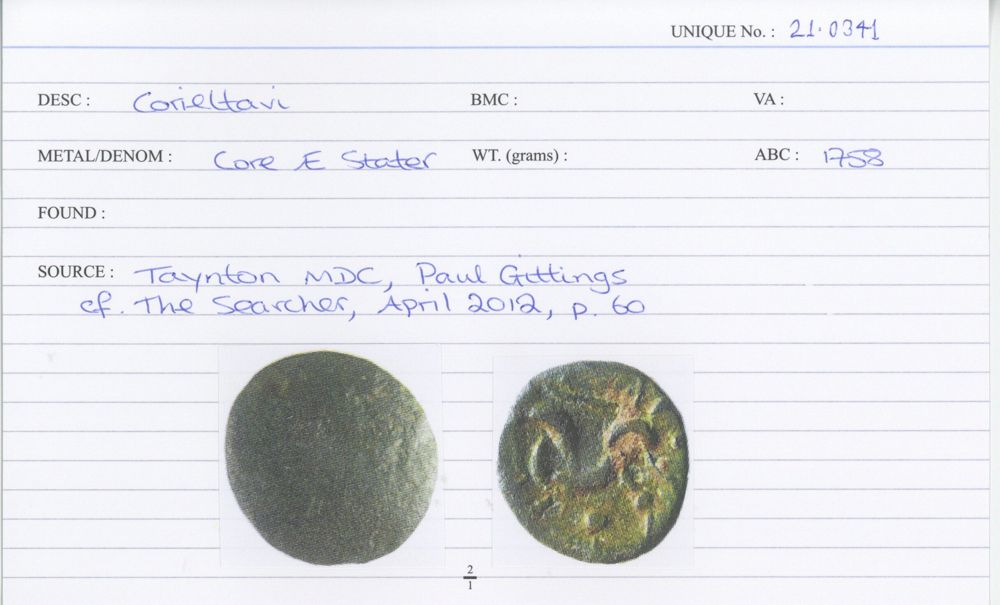 UNIQUE No. : 21.0341
DESC : Corieltavi BMC : VA :
METAL/DENOM : Core Æ Stater WT. (grams) : ABC : 1758
FOUND :
SOURCE : Taynton MDC, Paul Gittings
cf. The Searcher, April 2012, p. 60
2
1